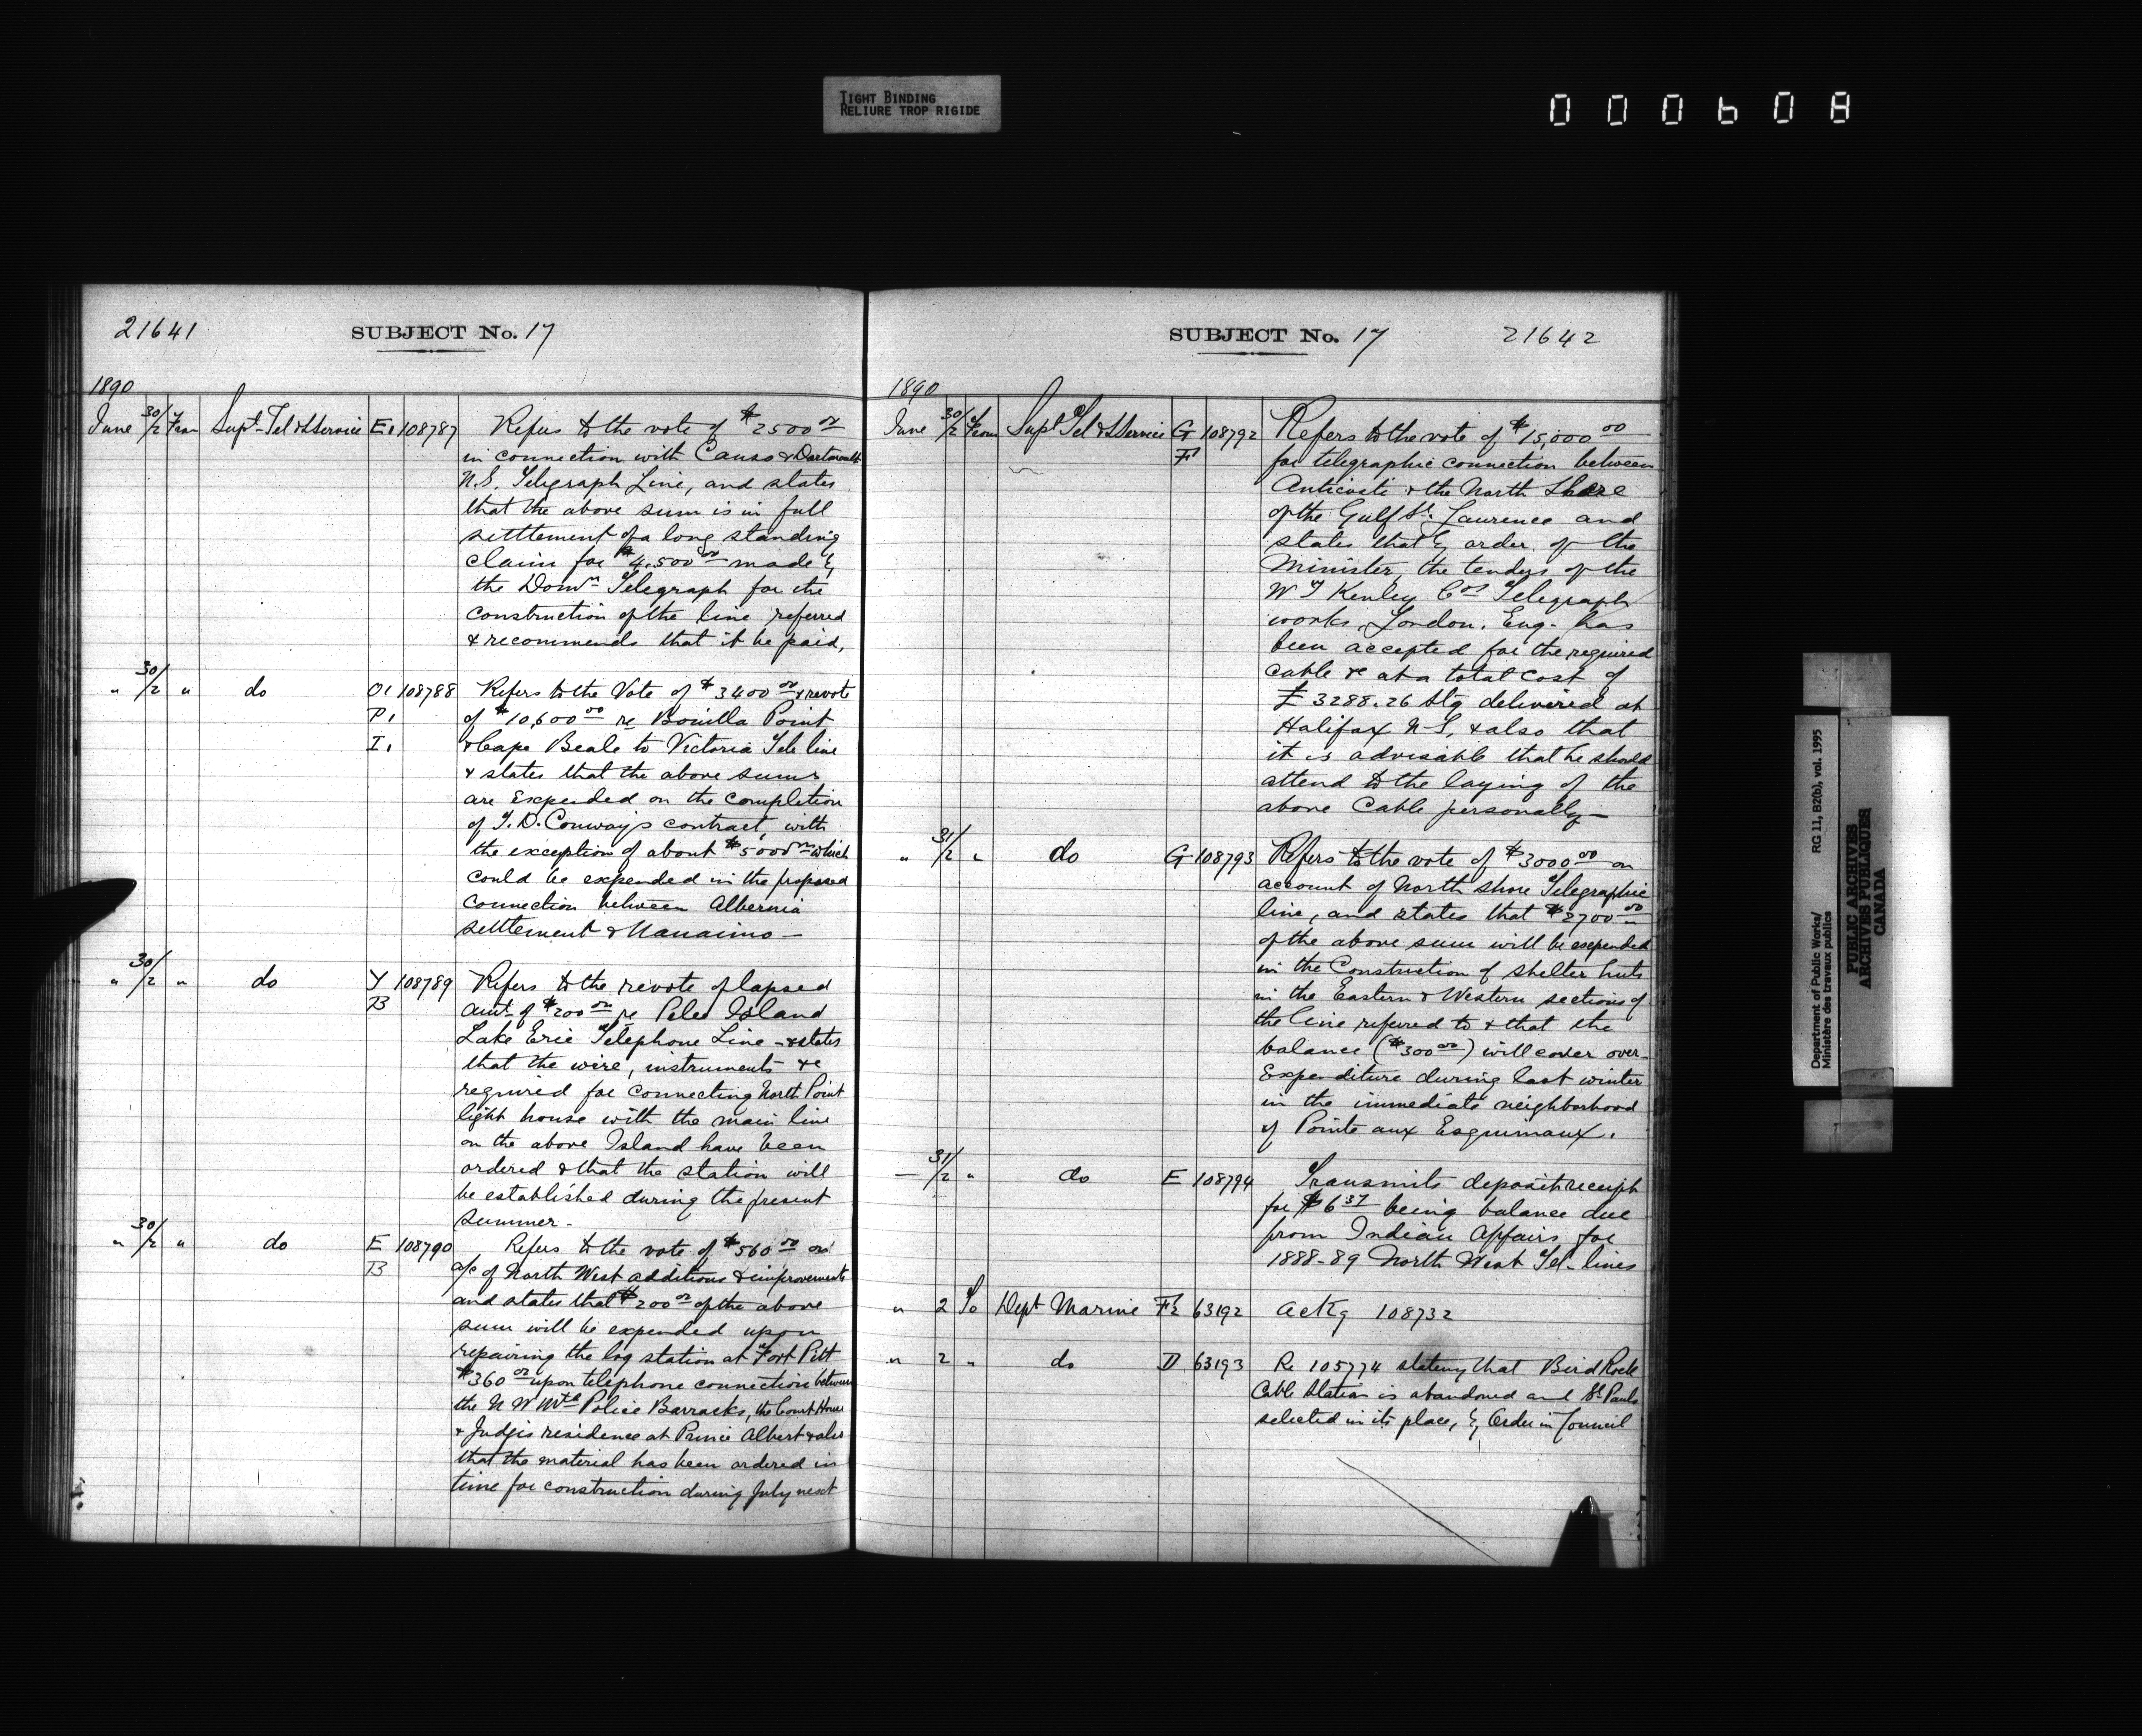 TIGHT BINDING
RELIURE TROP RIGIDE
000608
21641 SUBJECT No. 17
1890
June 30/2 From Supt Tel & S Service E1 108787 Refers to the vote of $2500 00
in connection with Canso & Dartmouth
N.S. Telegraph Line, and states
that the above sum is in full
settlement of a long standing
claim for $4,500 00 made by
the Domn Telegraph for the
construction of the line referred
& recommends that it be paid,
" 30/2 " do O1 108788 Refers to the Vote of $3400 00 & revote
P1 of $10,600 00 re Bonilla Point
I1 & Cape Beale to Victoria Tele line
& states that the above sums
are expended on the completion
of F.D. Conway's contract, with
the exception of about $5000 00 which
could be expended in the proposed
connection between Albernia
settlement & Nanaimo —
" 30/2 " do Y 108789 Refers to the revote of lapsed
B amt of $200 00 re Pelee Island
Lake Erie Telephone Line - & states
that the wire, instruments &c
required for connecting North Point
light house with the main line
on the above Island have been
ordered & that the station will
be established during the present
summer -
" 30/2 " do E 108790 Refers to the vote of $560 00 on
B a/c of North West additions & improvements
and states that $200 00 of the above
sum will be expended upon
repairing the log station at Fort Pitt
$360 00 upon telephone connection between
the N W Mtd Police Barracks, the Court House
& Judges residence at Prince Albert & also
that the material has been ordered in
time for construction during July next
SUBJECT No. 17 21642
1890
June 30/2 From Supt Tel & S Service G 108792 Refers to the vote of $15,000 00
F for telegraphic connection between
Anticosti & the North Shore
of the Gulf St. Laurence and
states that by order of the
Minister, the tender of the
W T Henley Cos Telegraph
works, London, Eng. has
been accepted for the required
cable &c at a total cost of
£3288.26 stg delivered at
Halifax N-S, & also that
it is advisable that he should
attend to the laying of the
above Cable personally —
" 31/2 " do G 108793 Refers to the vote of $3000 00 on
account of North Shore Telegraphic
line, and states that $2700 00
of the above sum will be expended
in the Construction of shelter huts
in the Eastern & Western sections of
the line referred to & that the
balance ($300 00) will cover over-
Expenditure during last winter
in the immediate neighborhood
of Pointe aux Esquimaux.
— 31/2 " do E 108794 Transmits deposit receipt
for $6 37 being balance due
from Indian Affairs for
1888-89 North West Tel- lines
" 2 To Dept Marine F2 63192 ackg 108732
" 2 " do D 63193 Re 105774 stating that Bird Rock
Cable Station is abandoned and St Pauls
selected in its place, by Order in Council
Department of Public Works/ RG 11, B2(b), vol. 1995
Ministère des travaux publics
PUBLIC ARCHIVES
ARCHIVES PUBLIQUES
CANADA